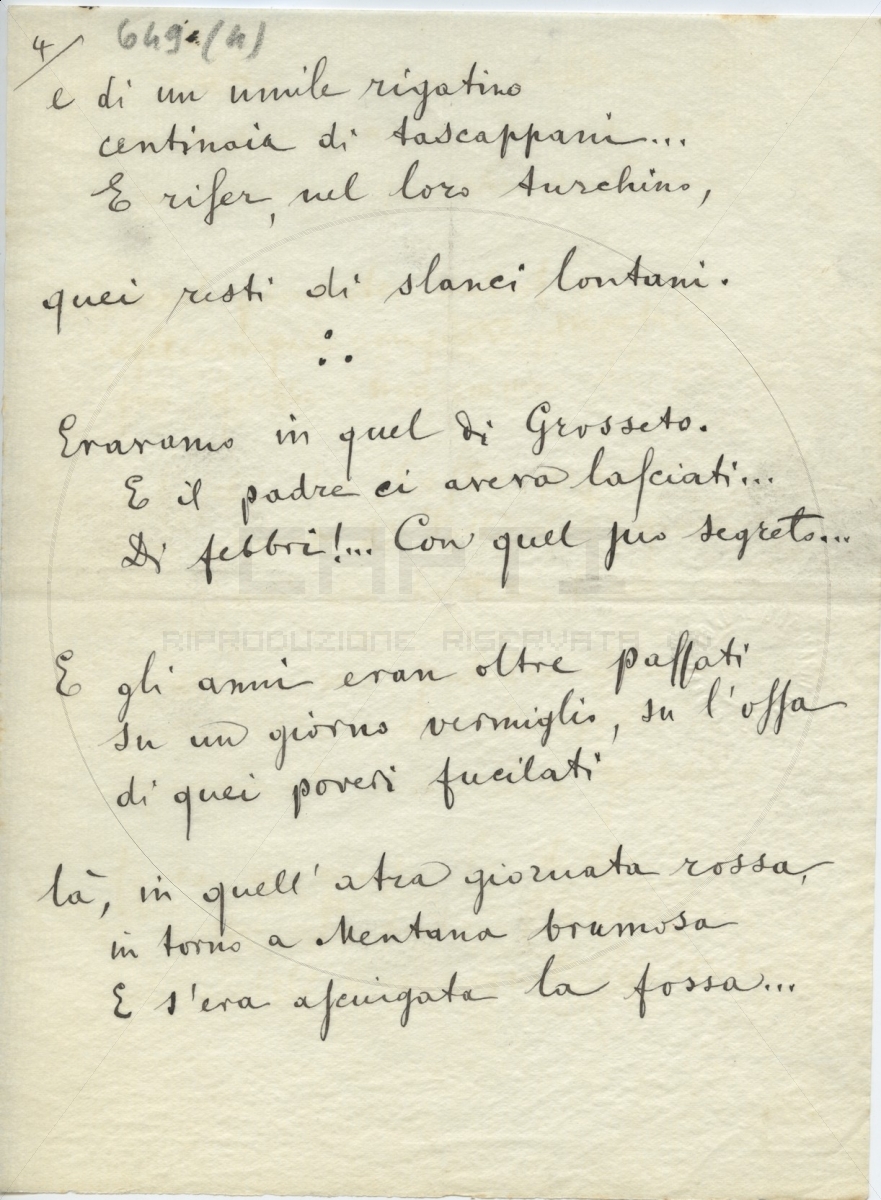 4/ 649.(4)
e di un umile rigatino
centinaia di tascappani...
E riser, nel loro turchino,
quei resti di slanci lontani.
∴
Eravamo in quel di Grosseto.
E il padre ci aveva lasciati...
Di febbri!... Con quel suo segreto...
E gli anni eran oltre passati
su un giorno vermiglio, su l'ossa
di quei poveri fucilati
là, in quell'atra giornata rossa,
in torno a Mentana brumosa
E s'era asciugata la fossa...
CARTI
RIPRODUZIONE RISERVATA